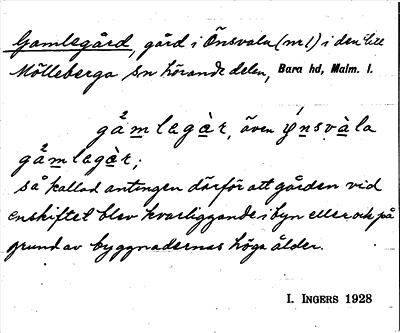 Gamlegård, gård i Önsvala (nr 1) i den till
Mölleberga sn hörande delen, Bara hd, Malm. l.
gåmlegàr, även ýnsvàla
gåmlegàr;
så kallad antingen därför att gården vid
enskiftet blev kvarliggande i byn eller ock på
grund av byggnadernas höga ålder.
I. INGERS 1928